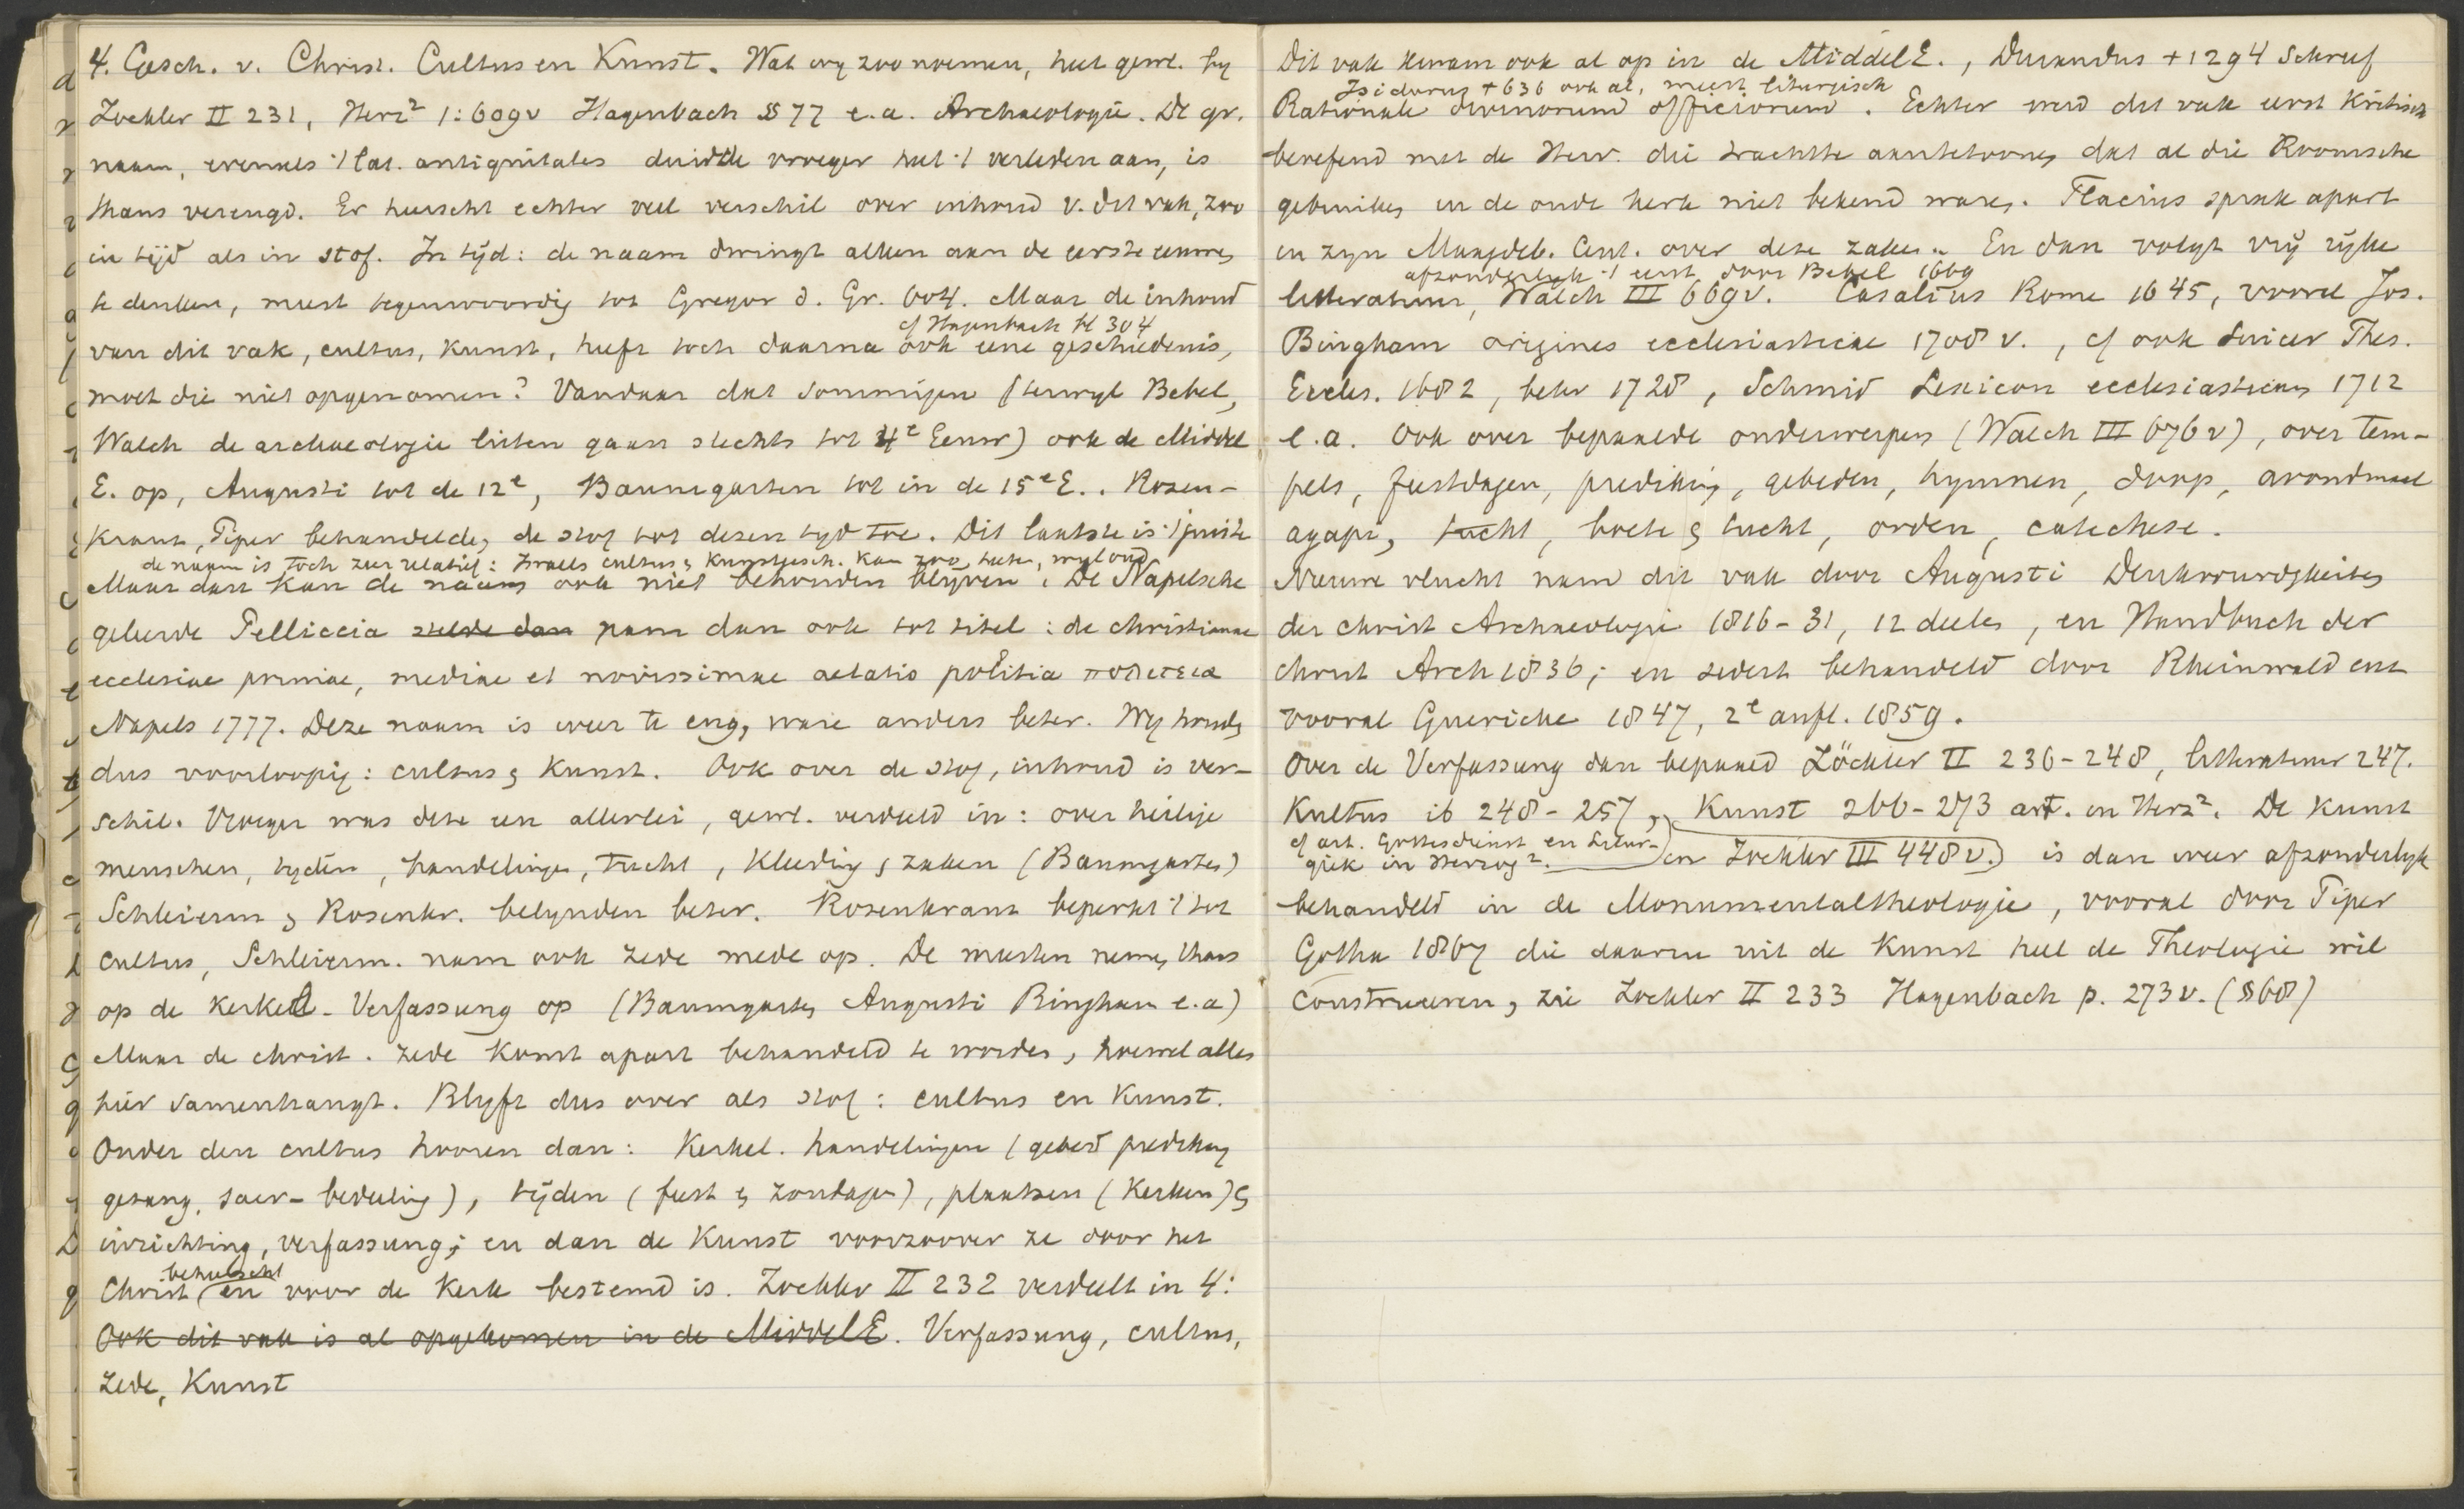 4. Gesch. v. Christ. Cultus en Kunst. Wat wy zoo noemen, heet gew. by
Zockler II 231, Herz² 1:609v Hagenbach § 77 e.a. Archaeologie. De gr.
naam, evenals 't lat. antiquitates duidde vroeger heel 't verleden aan, is
thans verengd. Er heerscht echter veel verschil over inhoud v. dit vak, zoo
in tijd als in stof. In tijd: de naam dwingt alleen aan de eerste eeuwen
te denken, meest tegenwoordig tot Gregor d. Gr. 604. Maar de inhoud
cf Hagenbach bl 304
van dit vak, cultus, kunst, heeft toch daarna ook eene geschiedenis,
moet die niet opgenomen? Vandaar dat sommigen (terwyl Bebel,
Walch de archaeologie lieten gaan slechts tot 4e Eeuw) ook de Middel
E. op, Augusti tot de 12e, Baumgarten tot in de 15e E.. Rosen-
kranz, Piper behandelden de stof tot dezen tyd toe. Dit laatste is 't juiste
de naam is toch zeer relatief: Israels cultus en Kunstgesch. kan zoo heeten, wyl oud
Maar dan kan de naam ook niet behouden blyven. De Napelsche
geleerde Pelliccia stelde dan nam dan ook tot titel: de christianae
ecclesiae primae, mediae et novissimae aetatis politia πολιτεια
Napels 1777. Deze naam is weer te eng, ware anders beter. Wy houden
dus voorloopig: cultus en Kunst. Ook over de stof, inhoud is ver-
schil. Vroeger was deze een allerlei, gew. verdeeld in: over heilige
menschen, tyden, handelingen, tucht, kleeding en zaken (Baumgarten)
Schleierm en Rosenkr. belynden beter. Rosenkranz beperkt 't tot
cultus, Schleierm. nam ook zede mede op. De meesten nemen thans
op de Kerkel. Verfassung op (Baumgarten Augusti Bingham e.a)
Maar de christ. zede komt apart behandeld te worden, hoewel alles
hier samenhangt. Blyft dus over als stof: cultus en Kunst.
Onder den cultus hooren dan: Kerkel. handelingen (gebed prediking
gezang, sacr-bediening), tijden (feest en zondagen), plaatsen (Kerken) en
inrichting, verfassung; en dan de Kunst voorzoover ze door het
beheerscht
Christ en voor de Kerk bestemd is. Zockler II 232 verdeelt in 4:
Ook dit vak is al opgekomen in de MiddelE. Verfassung, cultus,
zede, Kunst
Dit vak kwam ook al op in de MiddelE., Durandus +1294 schreef
Isidorus +636 ook al, meest liturgisch
Rationale divinorum officiorum. Echter werd dit vak eerst Kritisch
beoefend met de Herv. die trachtte aantetoonen dat al die Roomsche
gebruiken in de oude kerk niet bekend waren. Flacius sprak apart
in zyn Maagdeb. Cent. over deze zaken. En dan volgt vrij rijke
afzonderlyk 't eerst door Bebel 1669
litteratuur, Walch III 669v. Casalius Rome 1645, vooral Jos.
Bingham origines ecclesiasticae 1708 v., cf ook Suicer Thes.
Eccles. 1682, beter 1728, Schmid Lexicon ecclesiasticum 1712
e.a. Ook over bepaalde onderwerpen (Walch III 676v), over tem-
pels, feestdagen, prediking, gebeden, hymnen, doop, avondmaal
agape, tucht, boete en tucht, orden, catechese.
Nieuwe vlucht nam dit vak door Augusti Denkwurdigkeiten
der christ Archaeologie 1816-31, 12 deelen, en Handbuch der
christ Arch 1836; en sedert behandeld door Rheinwald enz
vooral Guericke 1847, 2e aufl. 1859.
Over de Verfassung dan bepaald Zöckler II 236-248, litteratuur 247.
Kultus ib 248-257, Kunst 266-273 art. in Herz². De kunst
cf art. Gottesdienst en Litur-
giek in Herzog². en Zockler III 448v.) is dan weer afzonderlyk
behandeld in de Monumentaltheologie, vooral door Piper
Gotha 1867 die daarin uit de Kunst heel de Theologie wil
construeeren, zie Zockler II 233 Hagenbach p. 273v. (§68)